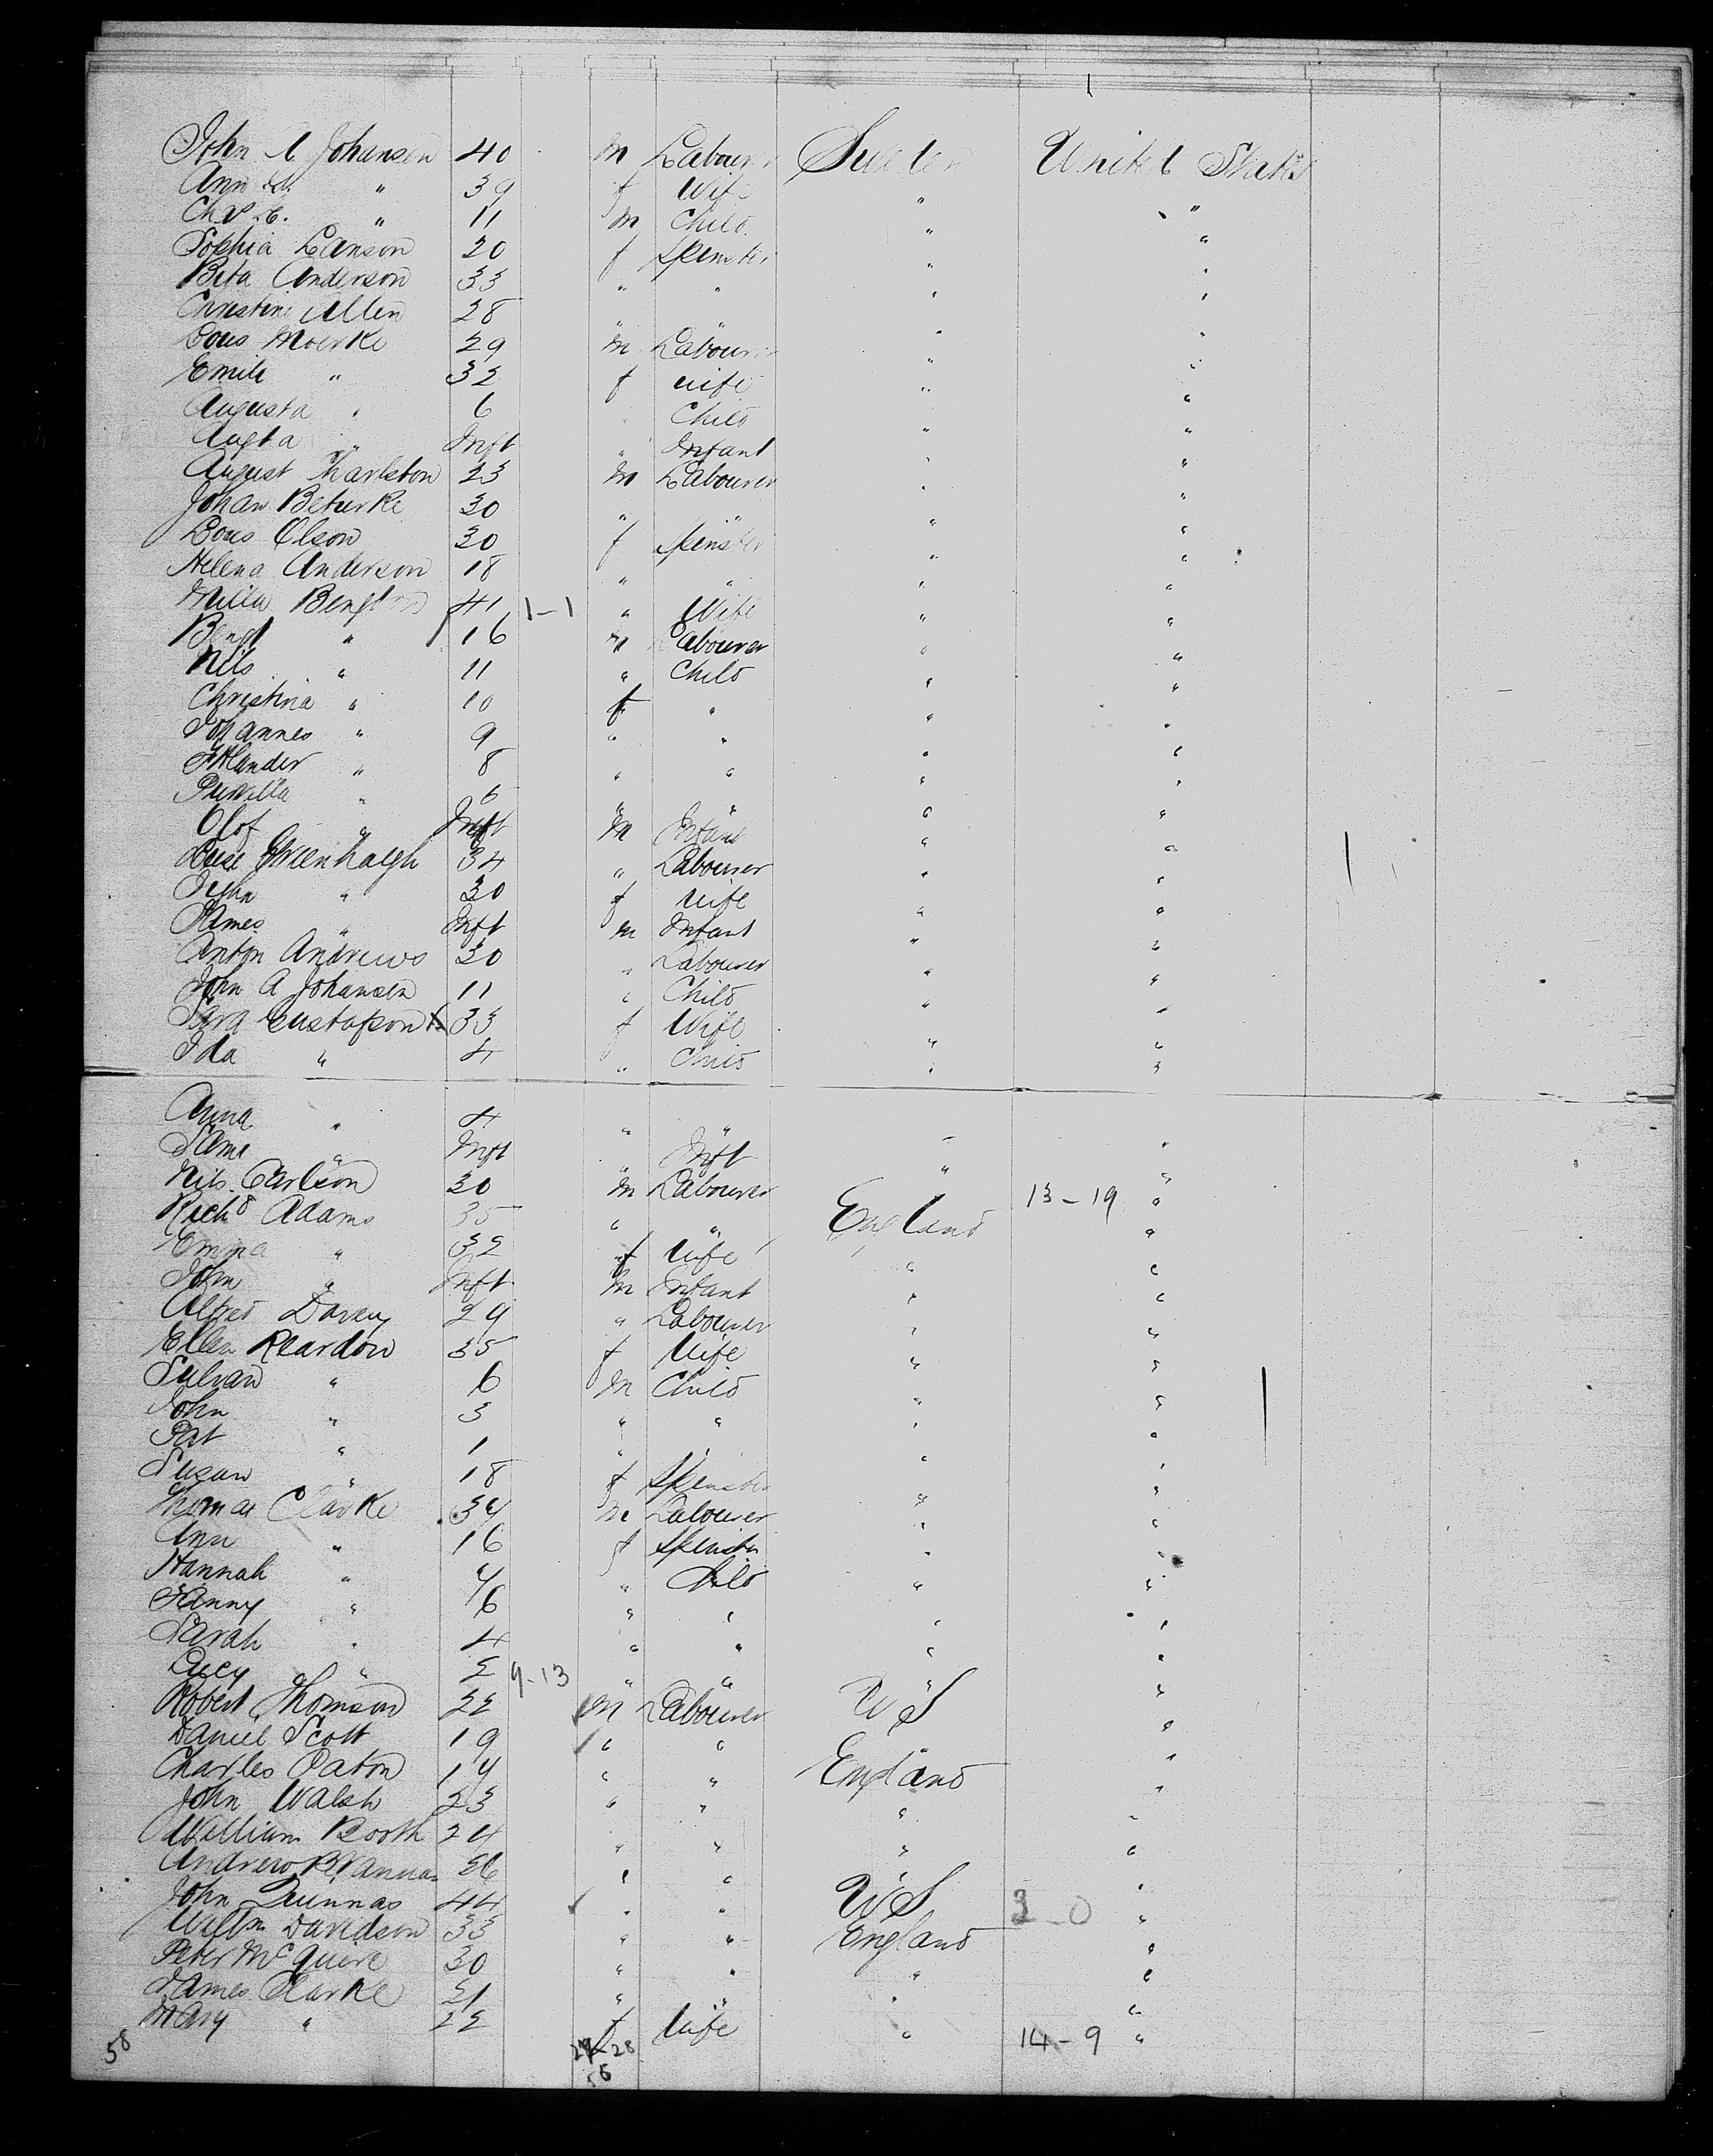 John A Johansen 40 m Labourer Sweden United States
Ann " 39 f Wife " "
Chs. " 11 m Child " "
Sophia Lanson 20 f Spinster " "
Beta Anderson 33 " " " "
Christine Allen 28 " " " "
Louis Moerke 29 m Labourer " "
Emile " 32 f wife " "
Augusta " 6 " Child " "
Augta " Inft " Infant " "
August Charlston 23 m Labourer " "
Johan Beturke 30 " " " "
Lous Olson 30 f Spinster " "
Helena Anderson 18 " " " "
Milla 41 1-1 " Wife " "
Bengt " 16 m Labourer " "
Nils " 11 " Child " "
Christina " 10 f " " "
Johannes " 9 " " " "
" 8 " " " "
" 6 " " " "
Olof " Inft m Infant " "
Greenhalgh 34 " Labourer " "
" 30 f Wife " "
James " Inft m Infant " "
Anton Andrews 30 " Labourer " "
John A Johansen 11 " Child " "
Sara Gustafson 33 f Wife " "
Ida " 4 " Child " "
Anna " 4 " " " "
" Inft " Inft " "
Nils Carlson 30 m Labourer " "
Richd Adams 35 " " England 13-19 "
Emma " 32 f Wife " "
John " Inft m Infant " "
Alfred Davey 29 " Labourer " "
Ellen Reardon 35 f Wife " "
" 6 m Child " "
John " 3 " " " "
Pat " 1 " " " "
Susan " 18 f Spinster " "
Thomas Clarke 34 m Labourer " "
Ann " 16 f Spinster " "
Hannah " 9 " Child " "
Fanny " 6 " " " "
Sarah " 4 " " " "
Lucy " 2 9-13 " " " "
Robert Thomson 22 m Labourer US "
Daniel Scott 19 " " " "
Charles Paton 14 " " England "
John Walsh 23 " " " "
William Booth 24 " " " "
Andrew 26 " " "
John Dunnas 44 " " US 3-0 "
Willm Davidson 33 " " England "
Peter McGuire 30 " " " "
James Clarke 21 " " " "
Mary " 22 f Wife " 14-9 "
58 29-28